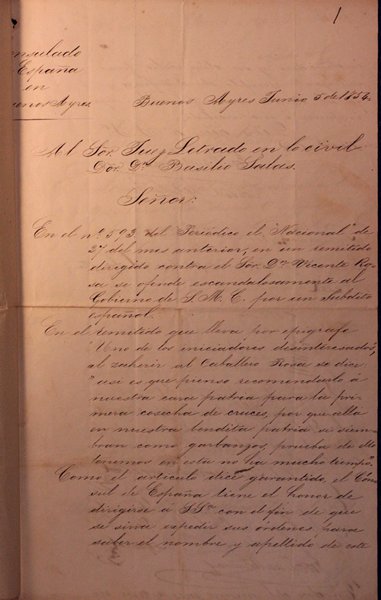 1
Consulado
España
en
Buenos Ayres
Buenos Ayres Junio 5 de 1854.
Al Sor. Juez Letrado en lo civil
Dor. Dn. Basilio Salas.
Señor:
En el nº 592 del Periódico el "Nacional" de
2 del mes anterior, en un remitido
dirigido contra el Sor. Dn. Vicente Ro
sa se ofende escandalosamente al
Gobierno de S. M. C. por un Subdito
español.
En el remitido que lleva por epigrafe
"Uno de los iniciadores desinteresados",
al zaherir al Caballero Rosa se dice
"asi es que pienso recomendarlo á
nuestra cara patria para la pri
mera cosecha de cruces, por que alla
en nuestra bendita patria se siem
bran como garbanzos, prueba de ello
tenemos en esta no ha mucho tiempo".
Como el articulo dice garantido, el Cón
sul de España tiene el honor de
dirigirse a SSa. con el fin de que
se sirva expedir sus órdenes para
saber el nombre y apellido de este